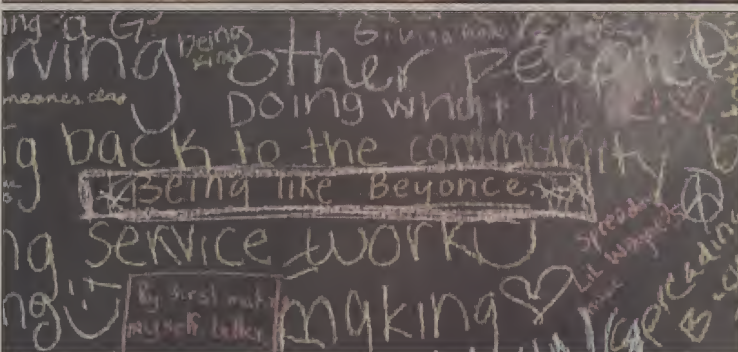 ing a G
Being
kind
Giving
rving other people
meones day
Doing what I
g back to the community b
Being like Beyonce
ng service work
Spreading
Lil Wayne's
music
Spreading
ng :)
By first making
myself better
making